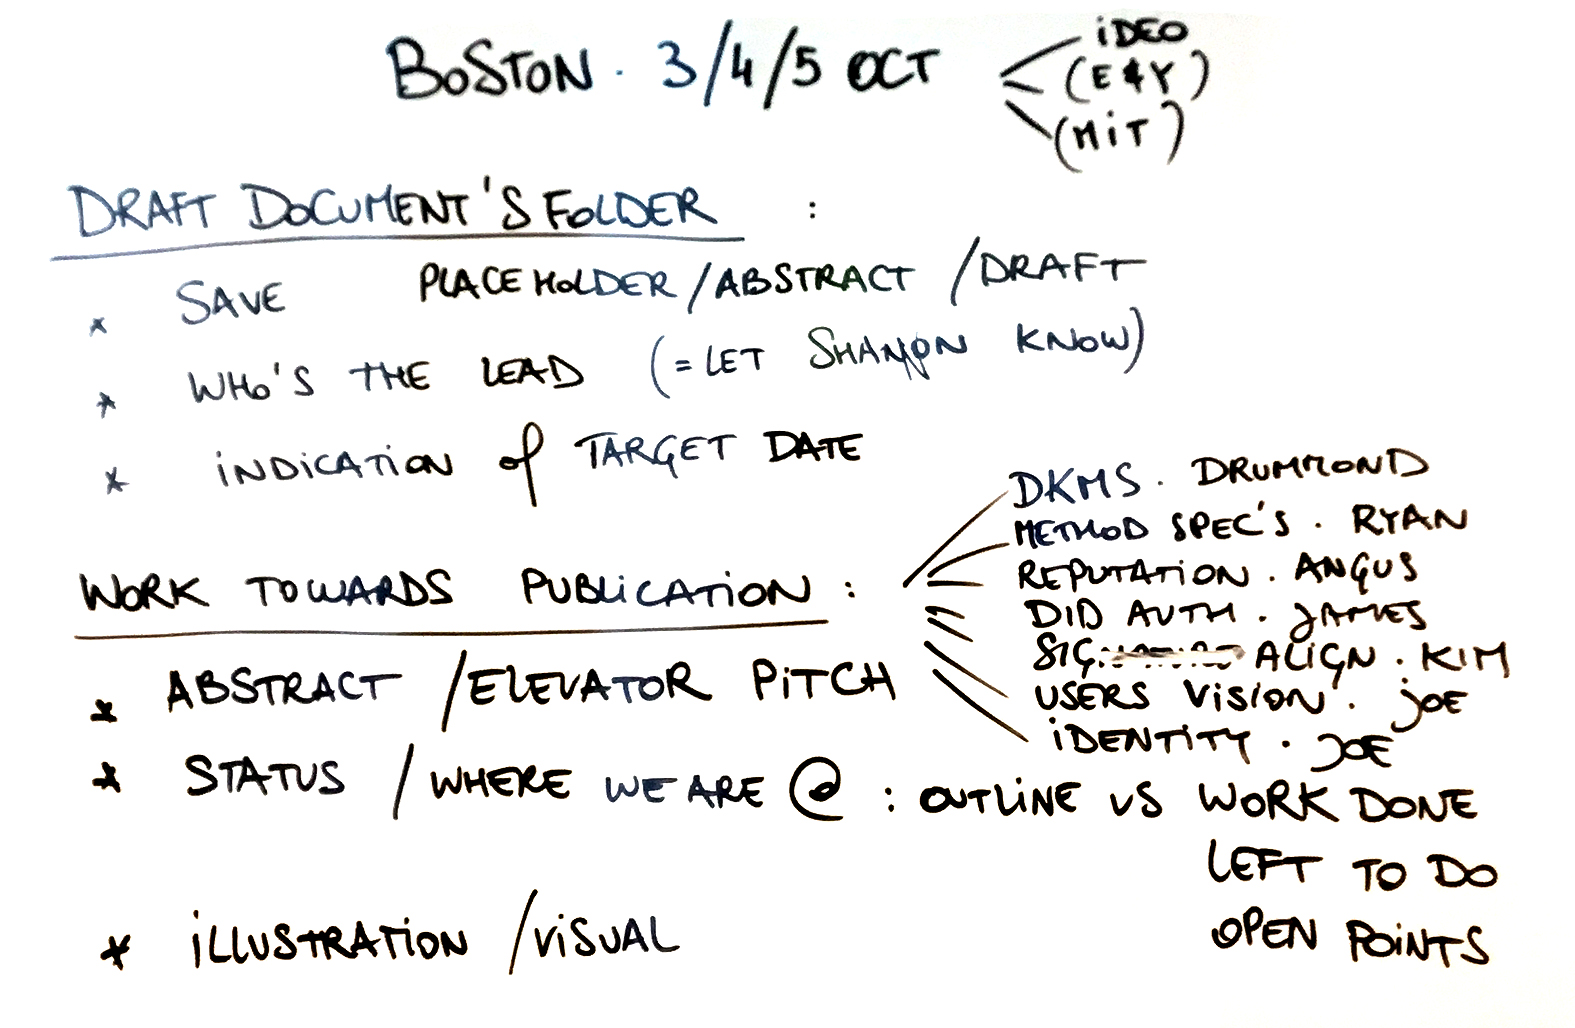 BOSTON · 3/4/5 OCT
iDEO
(E&Y)
(MiT)
DRAFT DOCUMENT'S FOLDER :
* SAVE PLACEHOLDER / ABSTRACT / DRAFT
* WHO'S THE LEAD (= LET SHANNON KNOW)
* iNDiCATiON of TARGET DATE
WORK TOWARDS PUBLiCATiON :
DKMS · DRUMMOND
METHOD SPEC'S · RYAN
REPUTATiON · ANGUS
DID AUTH · JAMES
SIG ALIGN · KIM
USERS ViSION · JOE
iDENTITY · JOE
* ABSTRACT / ELEVATOR PiTCH
* STATUS / WHERE WE ARE @ : OUTLiNE VS WORK DONE
LEFT TO DO
OPEN POiNTS
* iLLUSTRATiON / ViSUAL